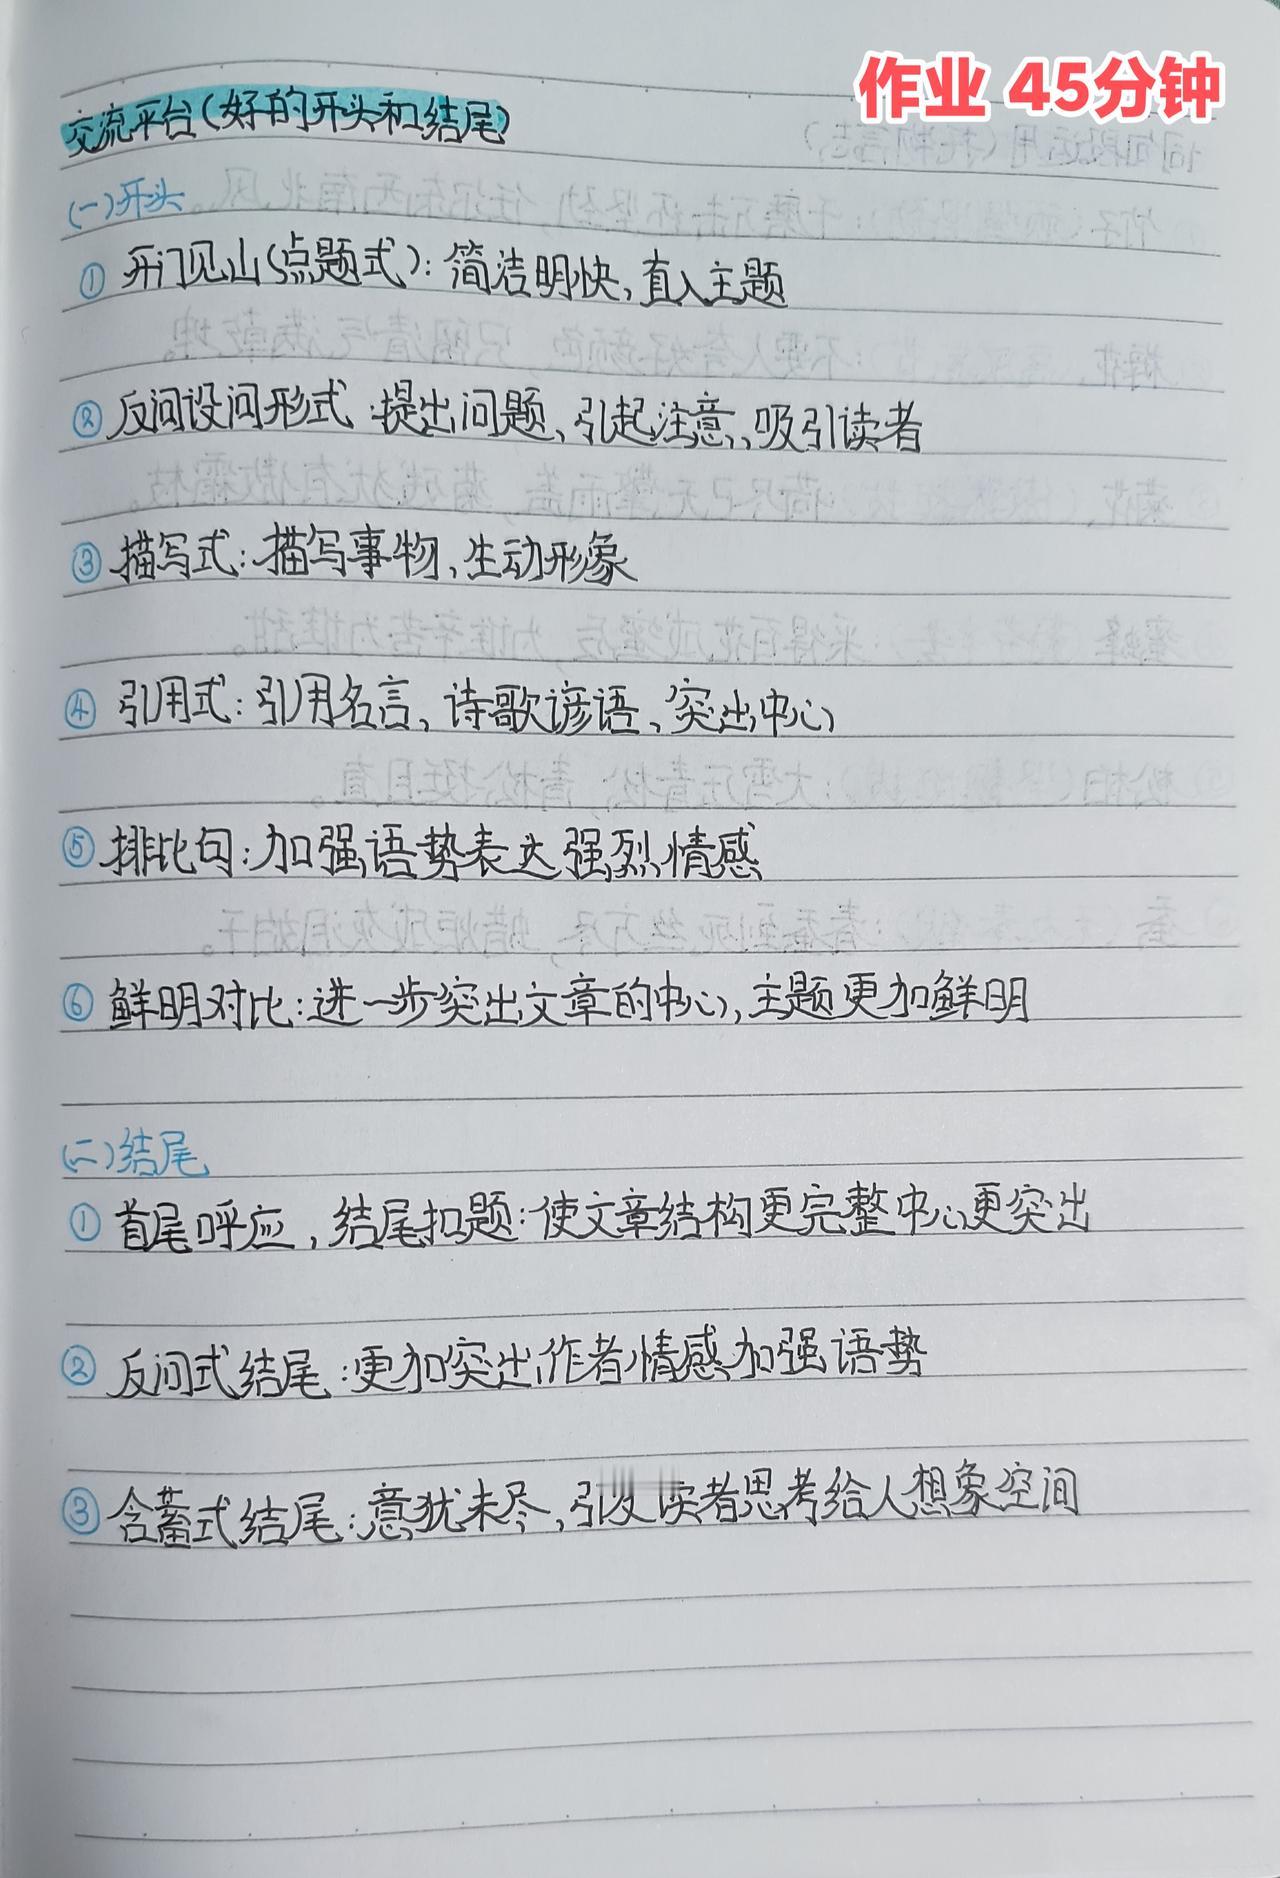 作业 45分钟
交流平台(好的开头和结尾)
(一)开头
① 开门见山(点题式):简洁明快,直入主题
② 反问设问形式:提出问题、引起注意、吸引读者
③ 描写式:描写事物、生动形象
④ 引用式:引用名言、诗歌谚语、突出中心
⑤ 排比句:加强语势表达强烈情感
⑥ 鲜明对比:进一步突出文章的中心,主题更加鲜明
(二)结尾
① 首尾呼应,结尾扣题:使文章结构更完整中心更突出
② 反问式结尾:更加突出作者情感加强语势
③ 含蓄式结尾:意犹未尽,引发读者思考给人想象空间